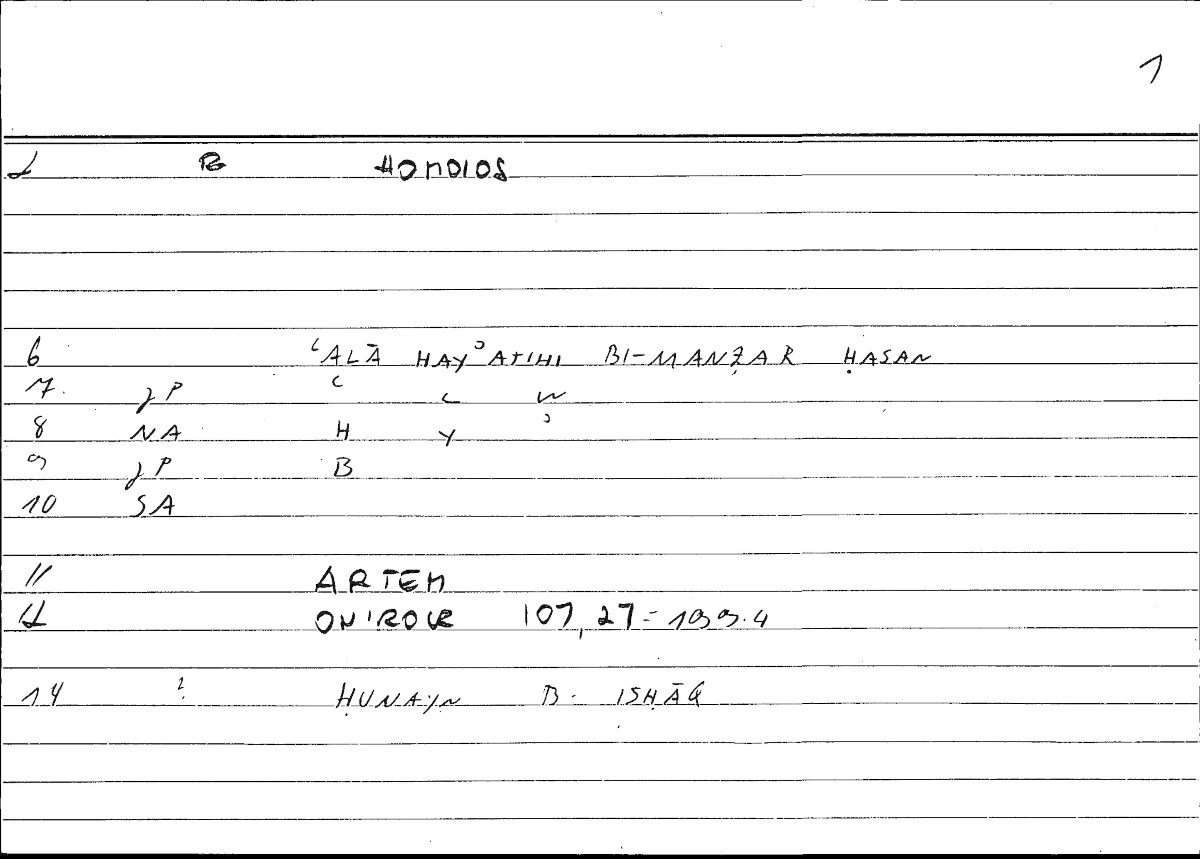 1
2 B HOMOIOS
6 ʿALĀ HAYʾATIHI BI-MANẒAR ḤASAN
7. JP ʿ L W
8 NA H Y ʾ
9 JP B
10 SA
11 ARTEM
12 ONIROCR 107,27 = 199.4
14 ? ḤUNAYN B. ISḤĀQ